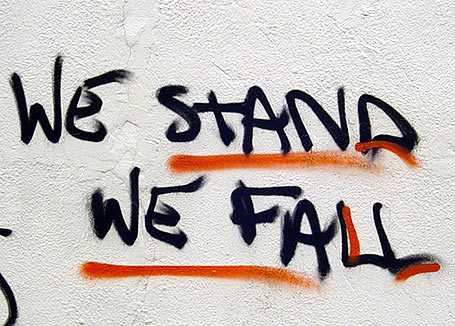 WE STAND
WE FALL